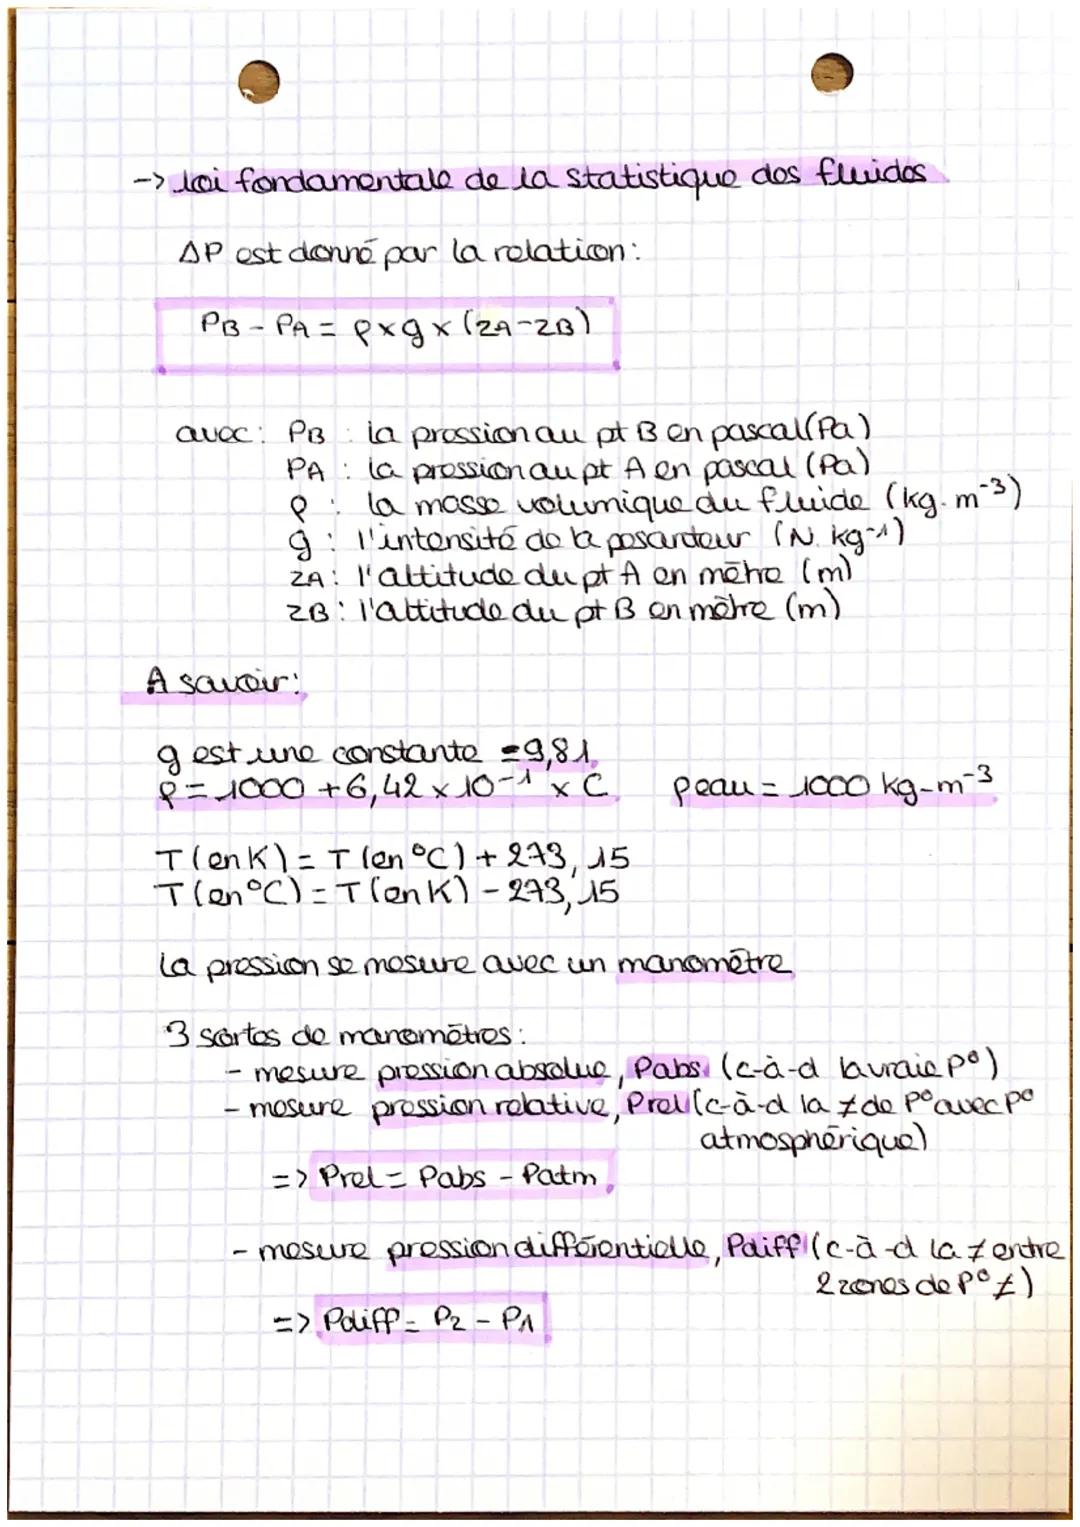 -> loi fondamentale de la statistique des fluides
ΔP est donné par la relation:
PB - PA = ρ x g x (zA-zB)
avec: PB : la pression au pt B en pascal (Pa)
PA : la pression au pt A en pascal (Pa)
ρ : la masse volumique du fluide (kg.m⁻³)
g : l'intensité de la pesanteur (N.kg⁻¹)
zA: l'altitude du pt A en mètre (m)
zB: l'altitude du pt B en mètre (m)
A savoir:
g est une constante = 9,81
ρ = 1000 + 6,42 x 10⁻¹ x C ρeau = 1000 kg-m⁻³
T(en K) = T(en °C) + 273,15
T(en °C) = T(en K) - 273,15
La pression se mesure avec un manomètre
3 sortes de manomètres:
- mesure pression absolue, Pabs (c-à-d la vraie p°)
- mesure pression relative, Prel (c-à-d la ≠ de p° avec p°
atmosphérique)
=> Prel = Pabs - Patm
- mesure pression différentielle, Pdiff (c-à-d la ≠ entre
2 zones de p° ≠)
=> Pdiff = P2 - P1